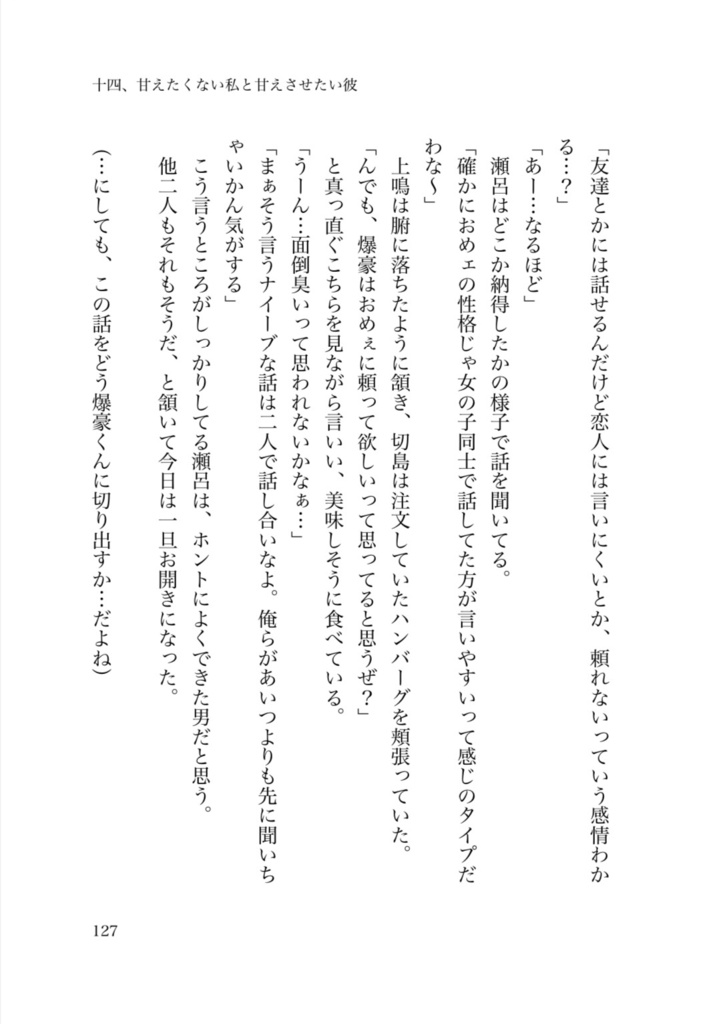 十四、甘えたくない私と甘えさせたい彼
「友達とかには話せるんだけど恋人には言いにくいとか、頼れないっていう感情わか
る…？」
「あー…なるほど」
瀬呂はどこか納得したかの様子で話を聞いてる。
「確かにおめェの性格じゃ女の子同士で話してた方が言いやすいって感じのタイプだ
わな〜」
上鳴は腑に落ちたように頷き、切島は注文していたハンバーグを頬張っていた。
「んでも、爆豪はおめぇに頼って欲しいって思ってると思うぜ？」
と真っ直ぐこちらを見ながら言いい、美味しそうに食べている。
「うーん…面倒臭いって思われないかなぁ…」
「まぁそう言うナイーブな話は二人で話し合いなよ。俺らがあいつよりも先に聞いち
ゃいかん気がする」
こう言うところがしっかりしてる瀬呂は、ホントによくできた男だと思う。
他二人もそれもそうだ、と頷いて今日は一旦お開きになった。
(…にしても、この話をどう爆豪くんに切り出すか…だよね)
127